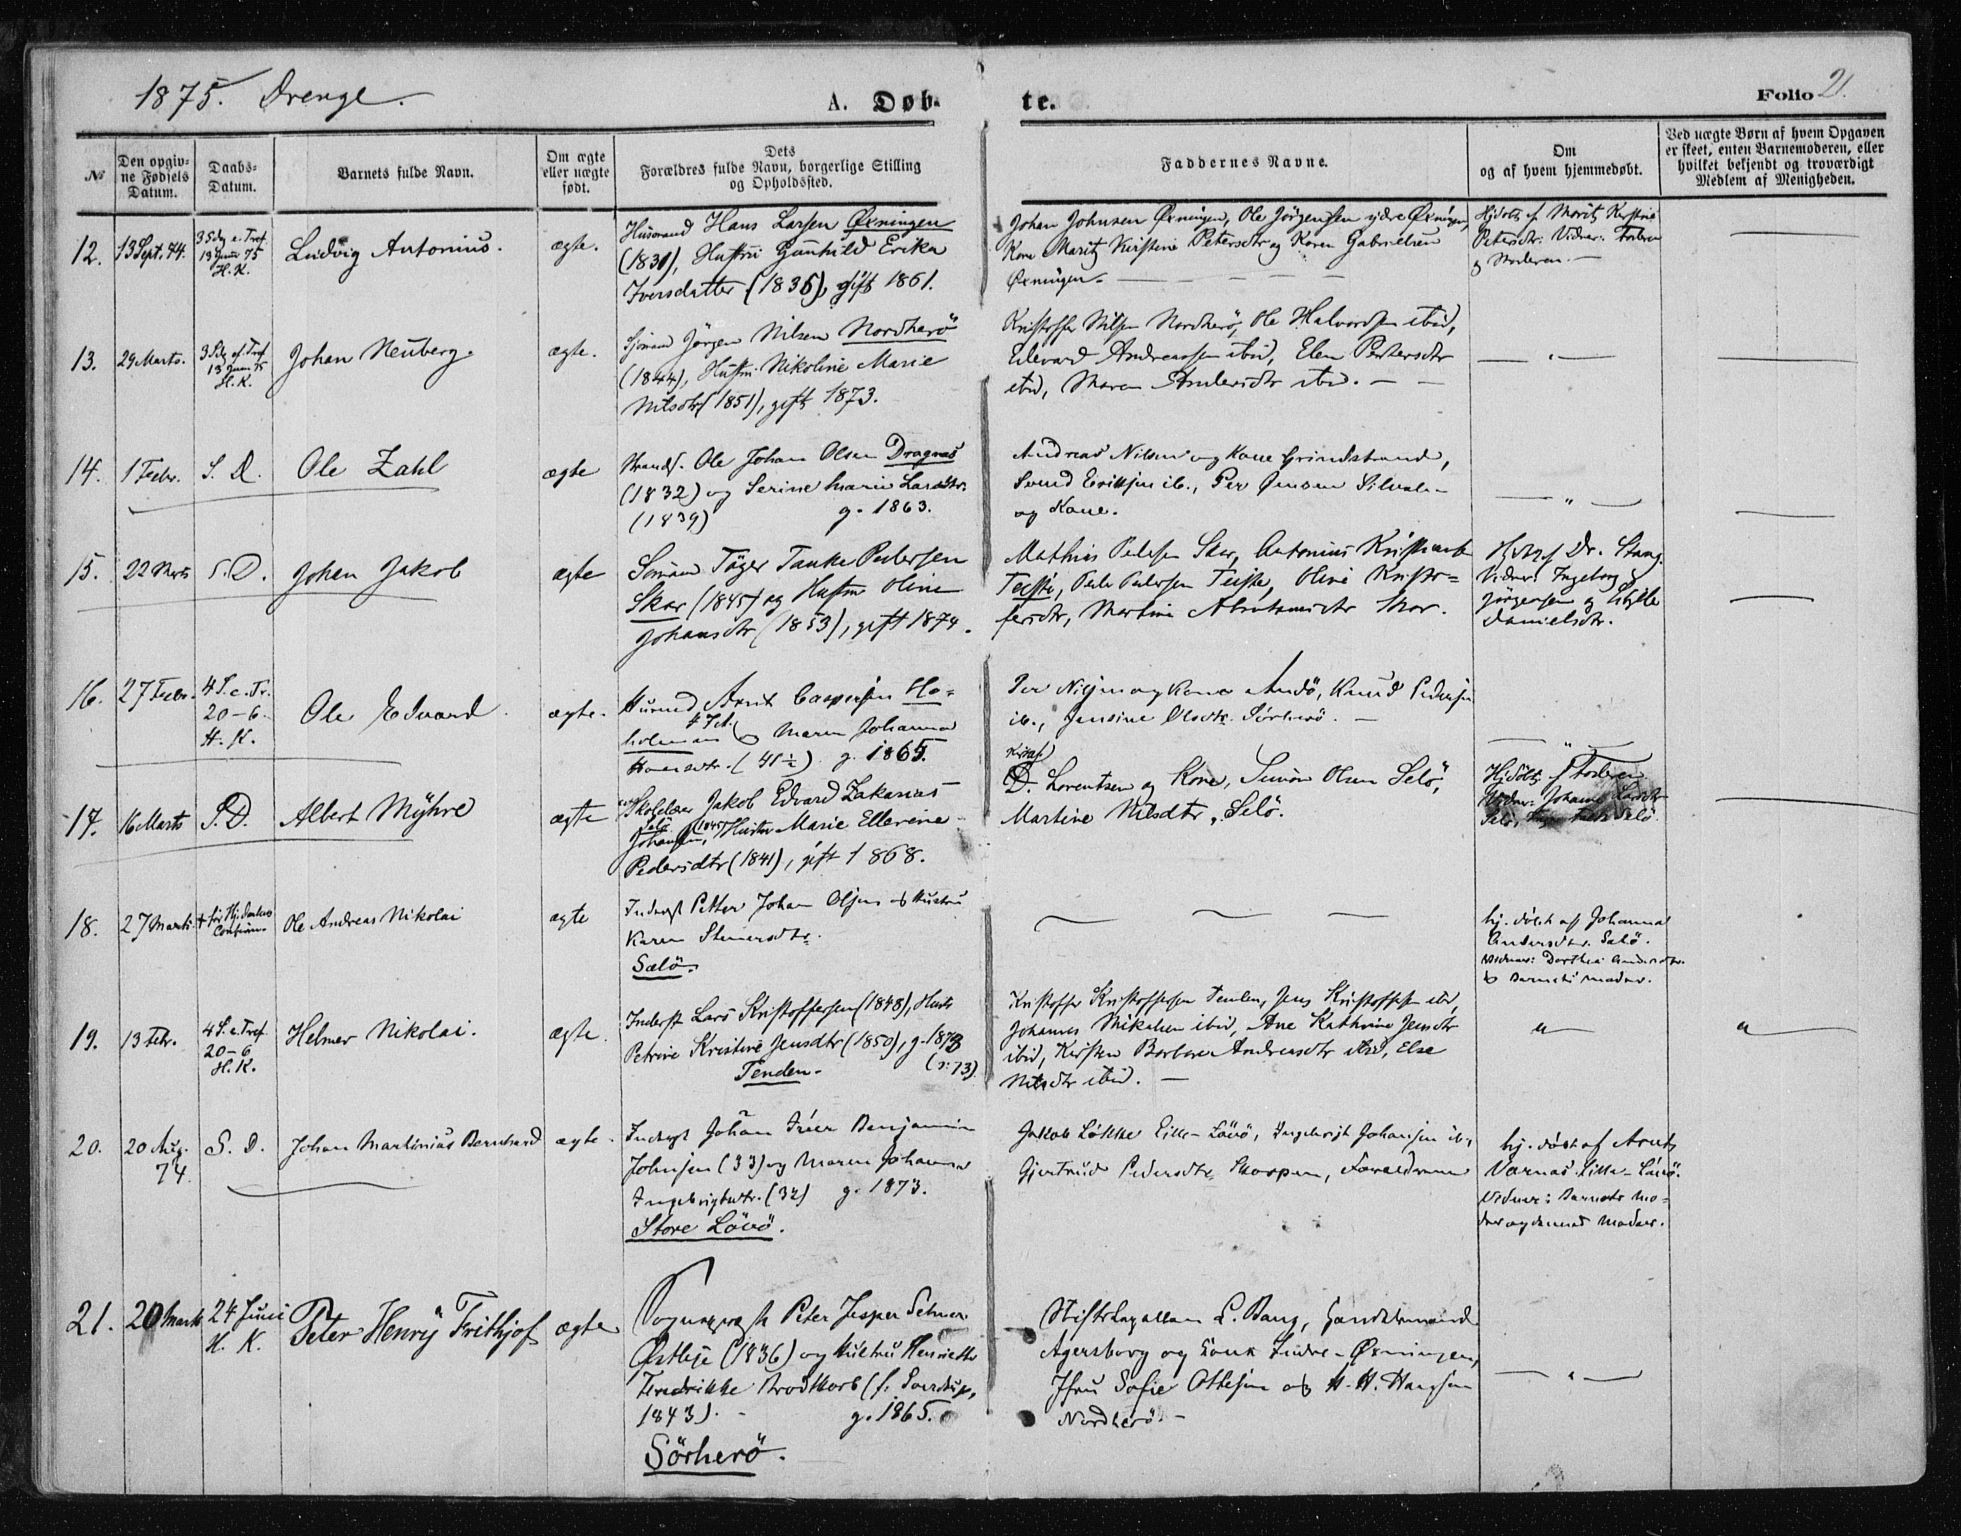 1875. Drenge.
A. Døb-
te.
Folio 21.
№
Den opgiv-
ne Fødsels
Datum.
Daabs-
Datum.
Barnets fulde Navn.
Om ægte
eller uægte
født.
Dets
Forældres fulde Navn, borgerlige Stilling
og Opholdssted.
Faddernes Navne.
Om
og af hvem hjemmedøbt.
Ved uægte Børn af hvem Opgaven
er skeet, enten Barnemoderen, eller
hvilket bekjendt og troværdigt
Medlem af Menigheden.
12. 13 Sept. 74.
3 Sdg e. Tref.
13 Juni 75
H. K.
Ludvig Antonius.
ægte.
Husmand Hans Larsen Øxningen
(1831), Hustru Gunhild Erika
Iversdatter (1836), gift 1861.
Johan Johnsen Øxningen, Ole Jörgensen ydre Øxningen,
Kone Marit Kirstine Petersdtr og Karen Gabrielsen
Øxningen.
Hjdøbt af Marit Kirstine
Petersdtr. Vidner: Faderen
og Moderen.
13. 29 Marts.
3 Sdg ef. Tref.
13 Juni 75
H. K.
Johan Neuberg.
ægte.
Sjömand Jörgen Nilsen Nordherö
(1844), Hustru Nikoline Marie
Nilsdtr (1851), gift 1873.
Kristoffer Nilsen Nordherö, Ole Halvorsen ibid,
Edevard Andreassen ibid, Elen Petersdtr
ibid, Maren Andersdtr ibid.
14. 1 Febr. S. D.
Ole Zahl
ægte
Strands. Ole Johan Olsen Dragnæs
(1832) og Serine Marie Larsdtr.
(1839) g. 1863.
Andreas Nilsen og Kone Grindstrand,
Svend Eriksen ib., Per Jensen
og Kone.
15. 22 Marts S. D.
Johan Jakob
ægte
Sömand Töger Tanke Pedersen
Skar (1845) og Hustru Oline
Johansdtr (1853), gift 1874.
Mathias Pedersen Skar, Antonius Kristiansen
Teiste, Peder Pedersen Teiste, Oline Kristo-
fersdtr, Martine Skar.
Hjdøbt af Dr. Stang.
Vidner: Ingeborg
Jörgensen og
Danielsdtr.
16. 27 Febr.
4 S. e. Tr.
20-6.
H. K.
Ole Edvard.
ægte.
Husmd Arnt Caspersen Ho-
holmen & Maren Johanna
Hansdtr. (41½) g. 1865.
Per Nilsen og Kone Andö, Knud Pedersen
ib., Jensine Olsdtr. Sörherö.
17. 16 Marts S. D.
Albert Mÿhre
ægte
Skolelær Jakob Edvard Zakarias
Johansen, Selö (1845) Hustru Marie Ellerine
Pedersdtr (1841), gift 1868.
D. Lorentsen og Kone, Simon Olsen Selö,
Martine Nilsdtr, Selö.
Hjdöbt af Faderen
Vidner: Johanna Larsdtr
Selö, Selö.
18. 27 Marts
† før Hj. Daabens
Confirm.
Ole Andreas Nikolai
ægte
Inderst Petter Johan Olsen & Hustru
Karen Steinersdtr.
Selö.
hj. døbt af Johanna
Andersdtr. Selö.
Vidner: Dorthea Andersdtr.
& Barnets Moder.
19. 13 Febr.
4 S. e. Tref
20-6
H. K.
Helmer Nikolai.
ægte.
Inderst Lars Kristoffersen (1848), Hustr
Petrine Kristine Jensdtr (1850), g. 1873
(ɔ: 73)
Tenden.
Kristoffer Kristoffersen Tenden, Jens Kristoffersen ibid,
Johannes Mikalsen ibid, Ane Kathrine Jensdtr
ibid, Kirsten Barbara Andreasdtr ibid, Else
Nilsdtr ibid.
20. 20 Aug.
74
S. D.
Johan Martinius Bernhard
ægte.
Inderst Johan Iver Benjamin
Johnsen (33) og Maren Johanna
Ingebrigtsdtr. (32) g. 1873.
Store Lövö.
Jakob Lökke Lille-Lövö, Ingebrigt Johansen ib.,
Gjertrud Pedersdtr Skospen, Forældrene
hj. døbt af Arnt
Varnæs Lille-Lövö.
Vidner: Barnets Mo-
der og dennes Moder.
21. 20 Marts
24 Juni
H. K.
Peter Henrÿ Frithjof
ægte
Sognepræst Peter Jesper Selmer
Østbye (1836) og Hustru Henriette
Fredrikke Brodtkorb (f. Sverdrup,
1843). g. 1865.
Sörherö.
Stiftskapellan L. Bang, Handelsmand
Agersborg og Kone Indre-Øxningen,
Jfru Sofie Ottesen og H. H. Hansen
Nordherö